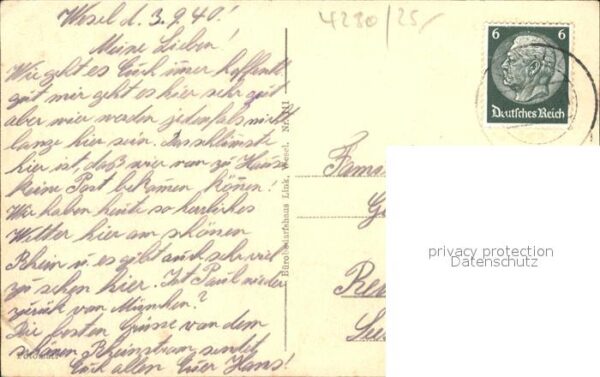 Wesel d. 3.9.40!
Meine Lieben!
Wie geht es Euch imer hoffentl.
gut mir geht es hier sehr gut
aber wier werden jedenfals nicht
lange hier sein. Das schlimste
hier ist, daß wier von zu Hause
keine Post bekomen könen!
Wir haben heute so herliches
Wetter hier am schönen
Rhein u. es gibt auch sehr viel
zu sehen hier. Ist Paul wieder
zurück von München?
Die besten Grüsse von dem
schönen Rheinstrom sendet
Euch allen Euer Hans!
Bürobedarfshaus Link, Wesel. Nr.
4230/25,-
6 6
Deutsches Reich
Fam
privacy protection
Datenschutz